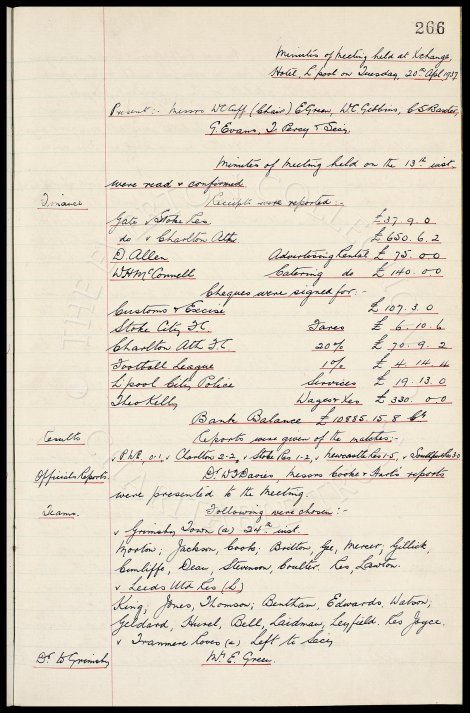 266
Minutes of Meeting held at Xchange
Hotel, L'pool on Tuesday, 20th Apl 1937
Present:- Messrs W.C. Cuff (Chair) E. Green, W.C. Gibbins, C.S. Baxter,
G. Evans, T. Percy & Secy.
Minutes of Meeting held on the 13th inst.
were read & confirmed
Finance Receipts were reported:-
Gate v Stoke Res. £37. 9. 0
do v Charlton Ath. £650. 6. 2
D. Allen Advertising Rental £ 75. 0.0
W.H. McConnell Catering do £ 140. 0.0
Cheques were signed for:-
Customs & Excise £ 107. 3. 0
Stoke City F.C. Fares £ 6. 10. 6
Charlton Ath F.C. 20% £ 70. 9. 2
Football League 1% £ 4. 14. 4
L'pool City Police Services £ 19. 13. 0
Theo Kelly Wages & Xes £ 330. 0.0
Bank Balance £10885. 15. 8 Cr
Results Reports were given of the matches:-
v P.N.E. 0-1, v Charlton 2-2, v Stoke Res 1-2, v Newcastle Res 1-5, v Southport Res 3.0
Officials Reports. Dr. W.F. Davies, Messrs Cooke & reports
were presented to the Meeting.
Teams. Following were chosen:-
v Grimsby Town (a) 24th inst.
Morton; Jackson, Cook; Britton, Gee, Mercer; Gillick,
Cunliffe, Dean, Stevenson, Coulter. Res, Lawton.
v Leeds Utd Res (L)
King; Jones, Thomson; Bentham, Edwards, Watson;
Geldard, Hurel, Bell, Laidman, Leyfield. Res Joyce.
v Tranmere Rovers (a) Left to Secy
Dr. to Grimsby Mr. E. Green.